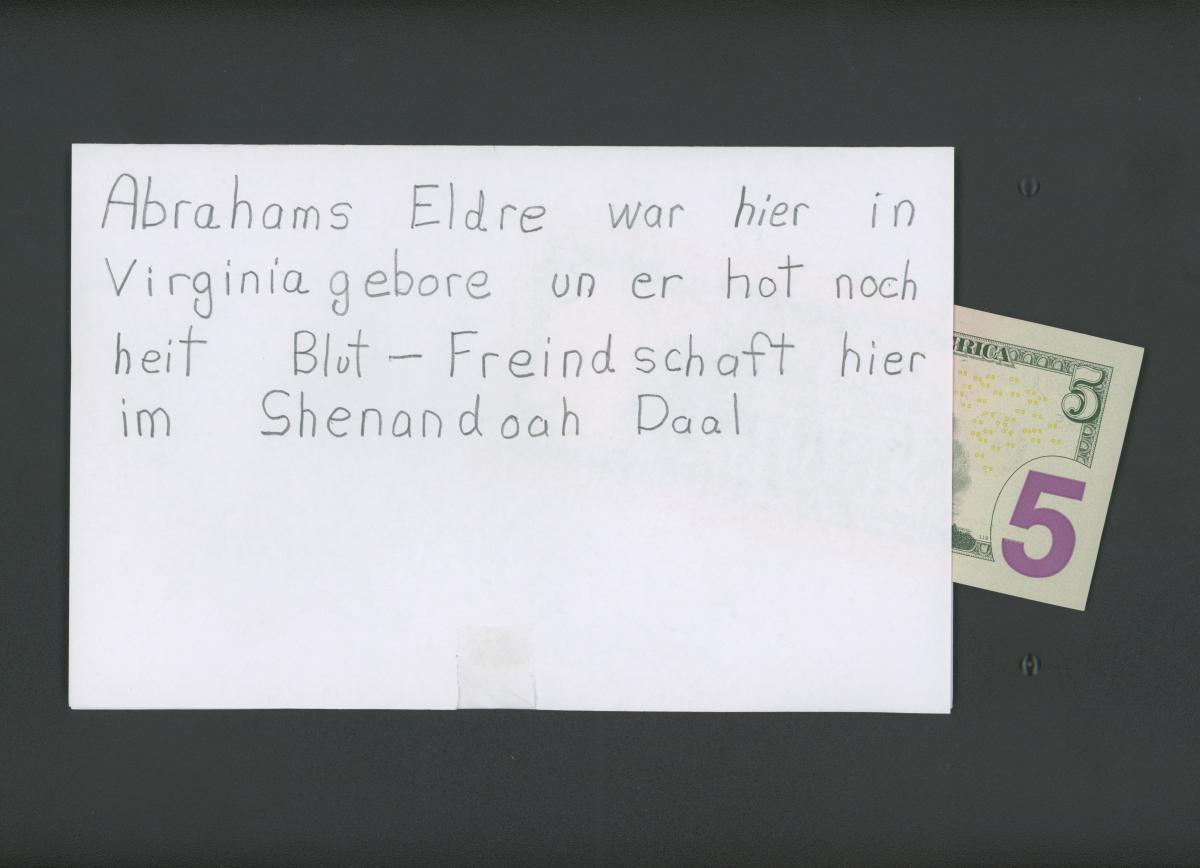 Abrahams Eldre war hier in
Virginia gebore un er hot noch
heit Blut - Freindschaft hier
im Shenandoah Daal
ERICA
5
5